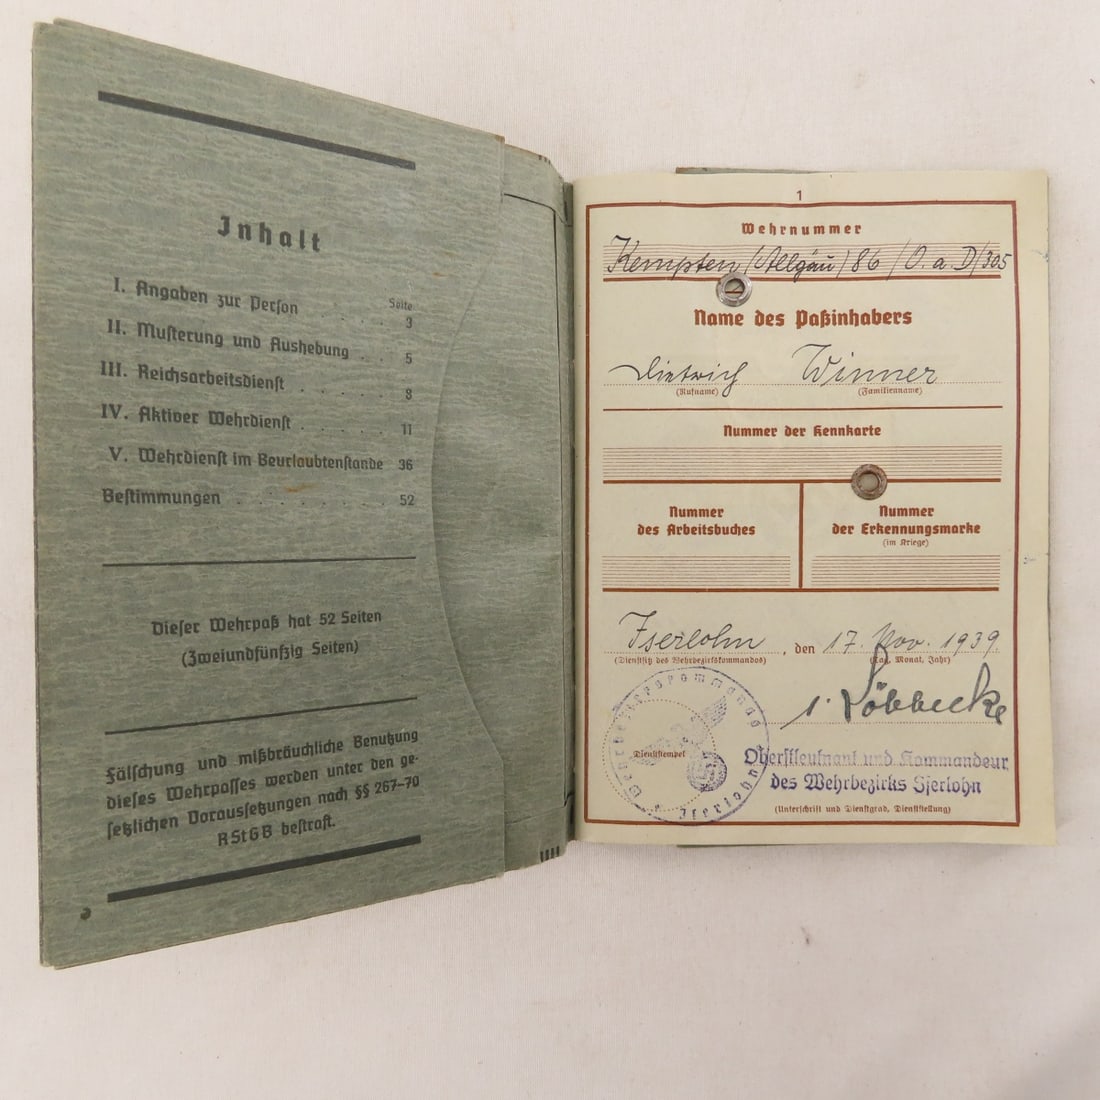 Inhalt
Seite
I. Angaben zur Person . . . . 3
II. Musterung und Aushebung . . 5
III. Reichsarbeitsdienst . . . . 8
IV. Aktiver Wehrdienst . . . . 11
V. Wehrdienst im Beurlaubtenstande 36
Bestimmungen . . . . . 52
Dieser Wehrpaß hat 52 Seiten
(Zweiundfünfzig Seiten)
Fälschung und mißbräuchliche Benutzung
dieses Wehrpasses werden unter den ge-
setzlichen Voraussetzungen nach §§ 267–70
RStGB bestraft.
1
Wehrnummer
Kempten (Allgäu) 86 / O. a. D/305
Name des Paßinhabers
Dietrich Winner
(Rufname) (Familienname)
Nummer der Kennkarte
Nummer
des Arbeitsbuches
Nummer
der Erkennungsmarke
(im Kriege)
Iserlohn, den 17. Nov. 1939
(Dienstsitz des Wehrbezirkskommandos) (Tag, Monat, Jahr)
Löbbecke
Wehrbezirkskommando
Iserlohn
Dienststempel
Oberstleutnant und Kommandeur
des Wehrbezirks Iserlohn
(Unterschrift und Dienstgrad, Dienststellung)